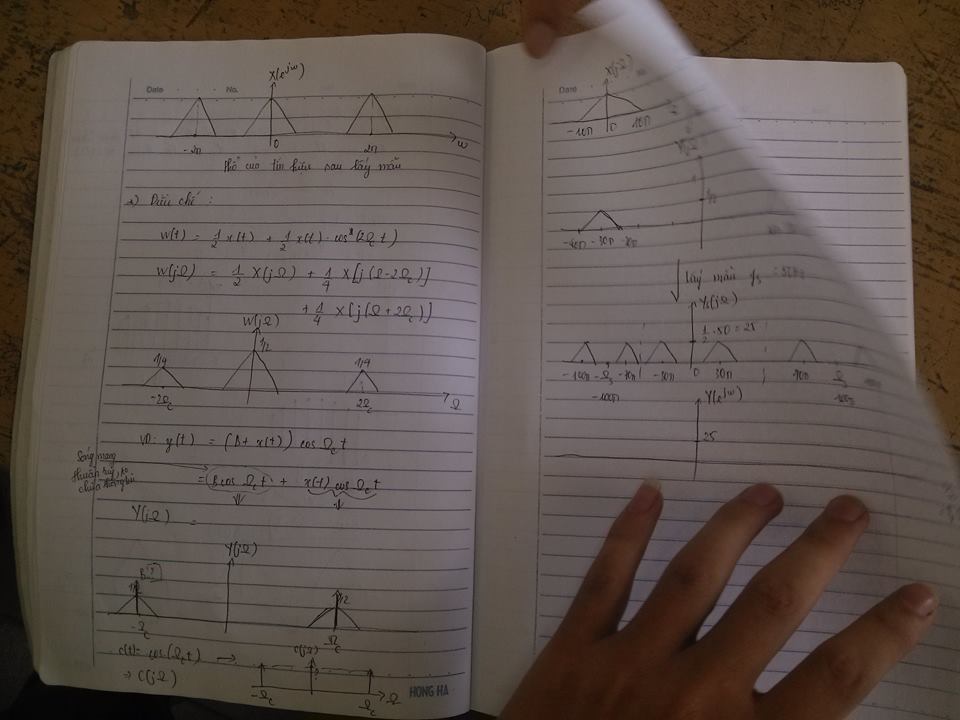 Date No.
X(e^jω)
-2π 0 2π ω
Phổ của tín hiệu sau lấy mẫu
Điều chế :
W(t) = 1/2 x(t) + 1/2 x(t) . cos (2Ω_c t)
W(jΩ) = 1/2 X(jΩ) + 1/4 X[j(Ω-2Ω_c)]
+ 1/4 X[j(Ω + 2Ω_c)]
W(jΩ)
1/4 1/2 1/4
-2Ω_c 2Ω_c Ω
VD: y(t) = (B + x(t)) cos Ω_c t
Sóng mang
thuần túy, ko
= B cos Ω_c t + x(t) cos Ω_c t
Y(jΩ) =
Y(jΩ)
1/2
-Ω_c Ω_c
c(t) = cos(Ω_c t) →
C(jΩ)
⇒ C(jΩ)
-Ω_c Ω_c Ω
HONG HA
Date
X(jΩ)
-10π 0 10π
1/2
-40π -30π
lấy mẫu
Y_s(jΩ)
1/2 . 50 = 25
-Ω_s -70π -30π 0 30π Ω_s
-100π
Y(e^jω)
25